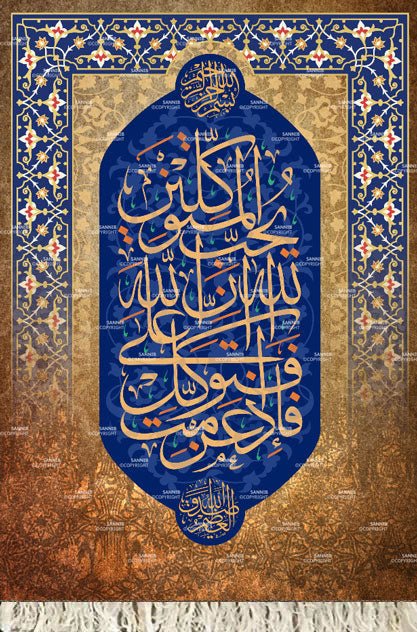 بسم الله الرحمن الرحيم
فإذا عزمت
فتوكل على
الله إن الله
يحب المتوكلين
صدق الله العظيم
SANNIB
©COPYRIGHT